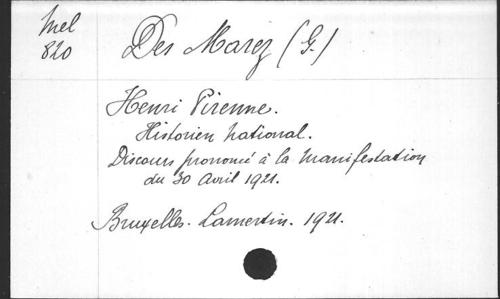 Mel
820
Des Marez (G.)
Henri Pirenne.
Historien national.
Discours prononcé à la Manifestation
du 30 Avril 1921.
Bruxelles. Lamertin. 1921.